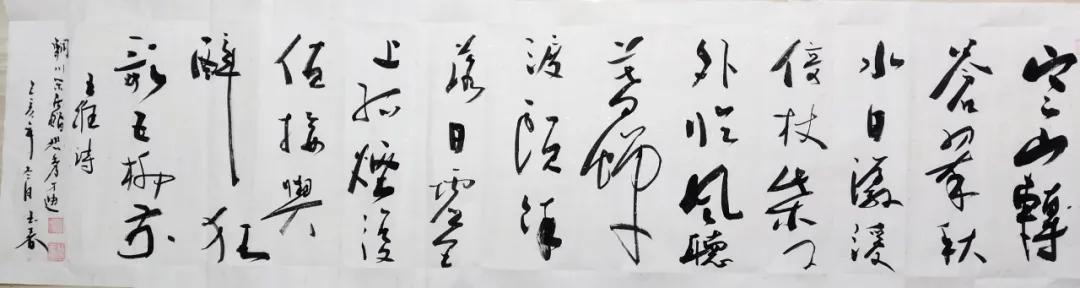 寒山轉
蒼翠秋
水日潺湲
倚杖柴门
外臨風聽
暮蟬
渡頭餘
落日墟里
上孤煙復
值接輿
醉狂
歌五柳前
王維詩
輞川閑居贈裴秀才迪
己亥年月